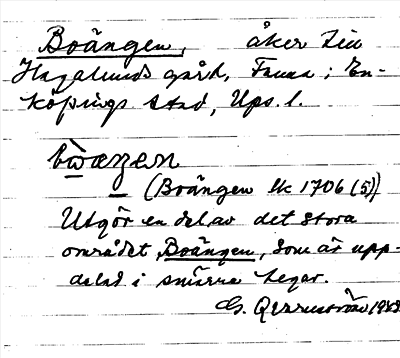 Boängen, åker till
Hagalunds gård, Fanna; En-
köpings stad, Ups. l.
bωaŋen
(Boängen lk 1706 (5))
Utgör en del av det stora
området Boängen, som är upp-
delad i smärre tegar.
G. 1953